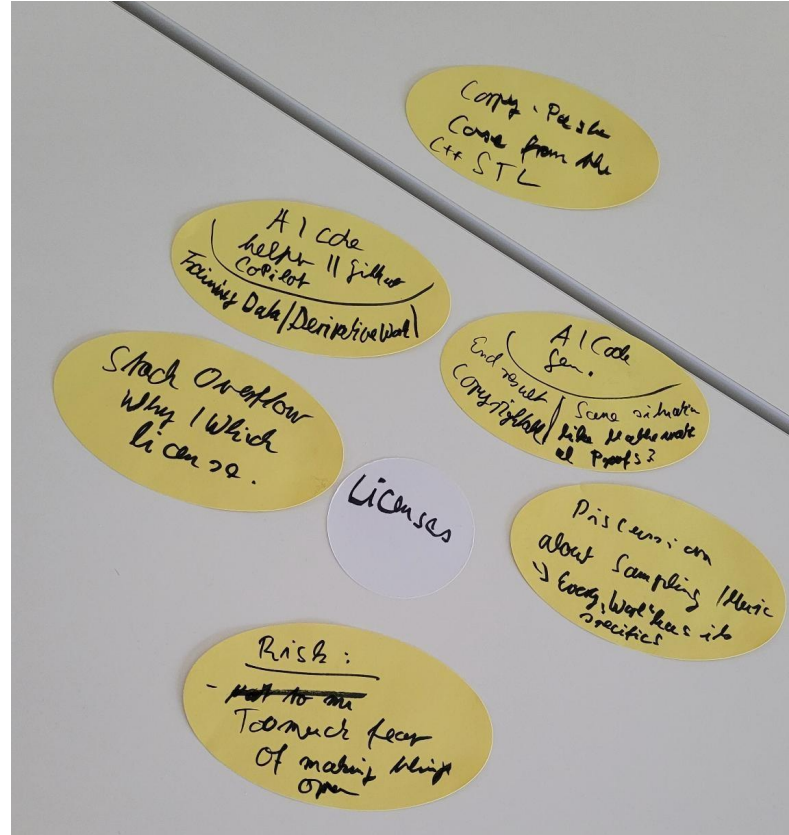 Copy, Paste
Code from the
C++ STL
AI Code
helper || Github
CoPilot
Training Data / Derivative Work /
AI Code
Gen.
End result
Copyrightable /
Same situation
like Mathemati
al Proofs?
Stack Overflow
Why / Which
license.
Licenses
Discussion
about Sampling / Music
↳ Every Work has its
specifics
Risk:
-
Too much fear
of making things
open